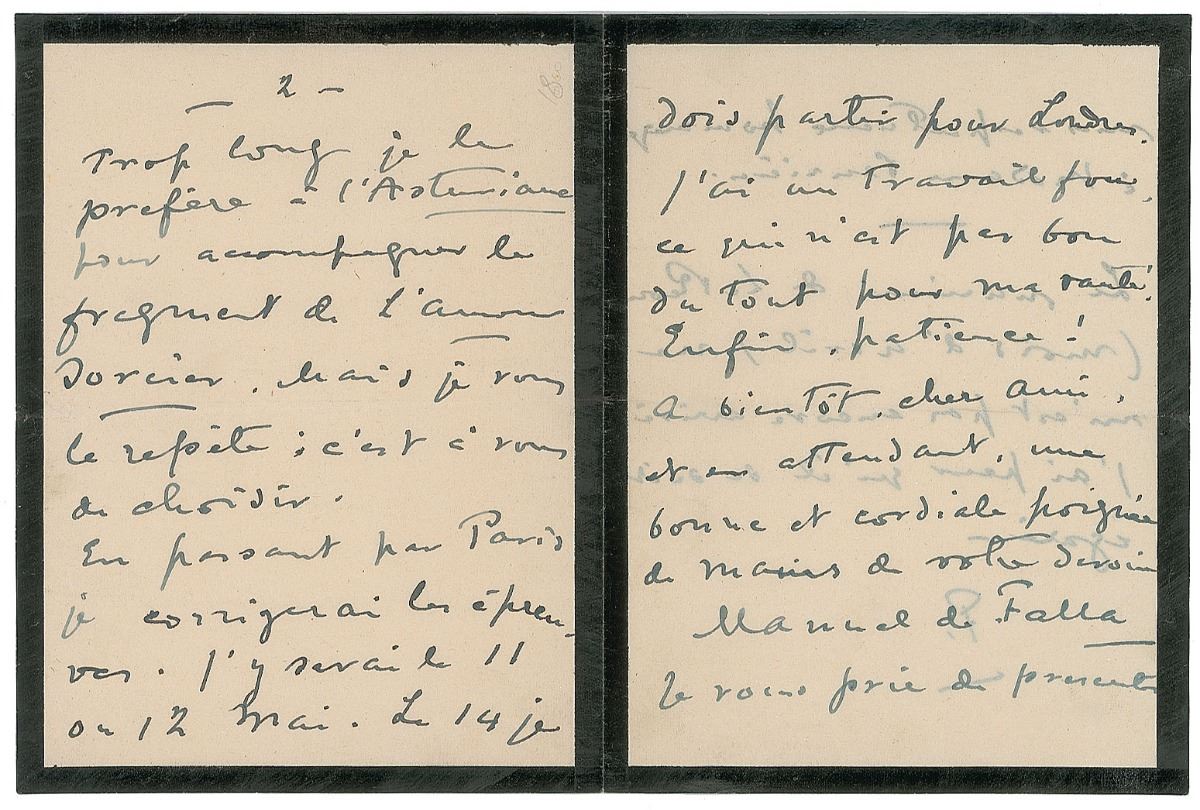 2 -
Trop long je le
prefère à l'Asturiana
pour accompagner le
fragment de L'amour
Sorcier. Mais je vous
le repète ; c'est à vous
de choisir.
En passant par Paris
je corrigerai les épreu-
ves. J'y serai le 11
ou 12 Mai. Le 14 je
dois partir pour Londres.
J'ai un travail fou,
ce qui n'est pas bon
du tout pour ma santé!
Enfin, patience!
A bientôt, cher Ami,
et en attendant, une
bonne et cordiale poignée
de mains de votre devoué
Manuel de Falla
Je vous prie de presenter